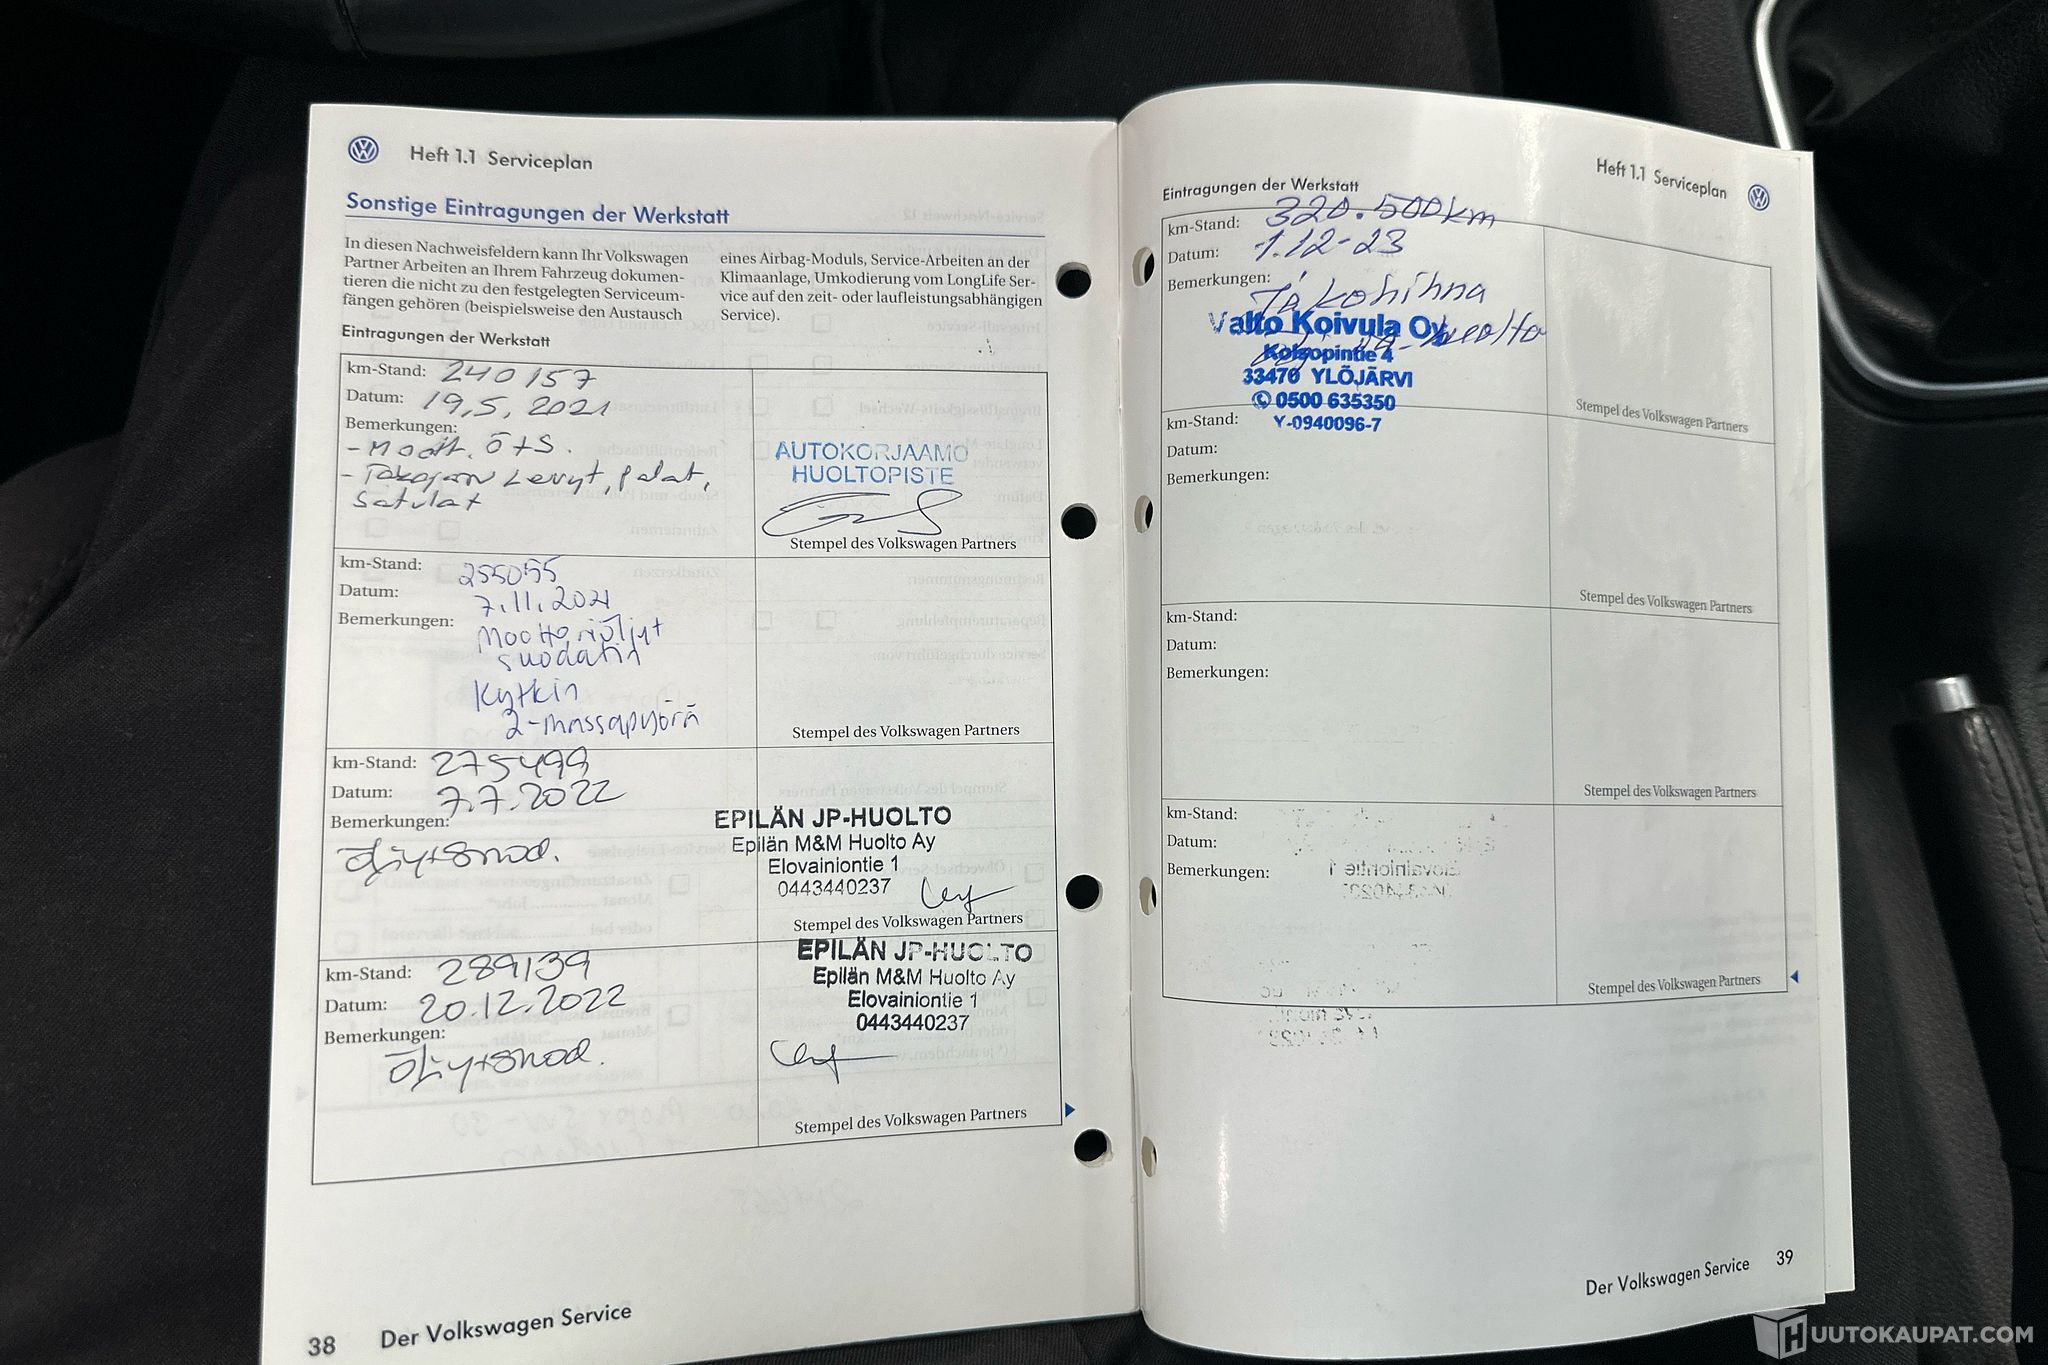 Heft 1.1 Serviceplan
Sonstige Eintragungen der Werkstatt
In diesen Nachweisfeldern kann Ihr Volkswagen
Partner Arbeiten an Ihrem Fahrzeug dokumen-
tieren die nicht zu den festgelegten Serviceum-
fängen gehören (beispielsweise den Austausch
eines Airbag-Moduls, Service-Arbeiten an der
Klimaanlage, Umkodierung vom LongLife Ser-
vice auf den zeit- oder laufleistungsabhängigen
Service).
Eintragungen der Werkstatt
km-Stand: 240157
Datum: 19,5, 2021
Bemerkungen:
- Moott. ö+s.
- Takajarru Levyt, palat,
satulat
AUTOKORJAAMO
HUOLTOPISTE
Stempel des Volkswagen Partners
km-Stand: 255055
Datum: 7.11.2021
Bemerkungen:
Moottoriöljyt
suodatin
Kytkin
2-massapyörä
Stempel des Volkswagen Partners
km-Stand: 275499
Datum: 7.7.2022
Bemerkungen:
öljy+suod.
EPILÄN JP-HUOLTO
Epilän M&M Huolto Ay
Elovainiontie 1
0443440237
Stempel des Volkswagen Partners
km-Stand: 289139
Datum: 20.12.2022
Bemerkungen:
öljy+suod.
EPILÄN JP-HUOLTO
Epilän M&M Huolto Ay
Elovainiontie 1
0443440237
Stempel des Volkswagen Partners
38 Der Volkswagen Service
Heft 1.1 Serviceplan
Eintragungen der Werkstatt
km-Stand: 320.500km
Datum: 1.12-23
Bemerkungen:
Jakohihna
huolto
Valto Koivula Oy
Kolsopintie 4
33470 YLÖJÄRVI
0500 635350
Y-0940096-7
Stempel des Volkswagen Partners
km-Stand:
Datum:
Bemerkungen:
Stempel des Volkswagen Partners
km-Stand:
Datum:
Bemerkungen:
Stempel des Volkswagen Partners
km-Stand:
Datum:
Bemerkungen:
Stempel des Volkswagen Partners
Der Volkswagen Service 39
HUUTOKAUPAT.COM